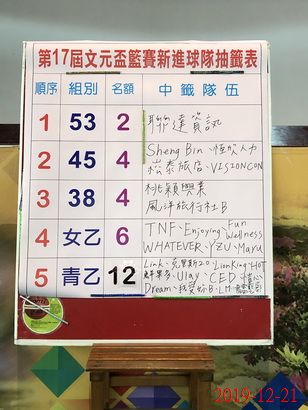 第17屆文元盃籃賽新進球隊抽籤表
順序 組別 名額 中籤隊伍
1 53 2 聯達資訊
2 45 4 Sheng Bin、恆欣人力
崧泰旅店、VISIONCON
3 38 4 桃穎興業
風洋旅行社B
4 女乙 6 TNF、Enjoying Fun
Wellness
WHATEVER、YZU、Maru
5 青乙 12 Link、克里斯2.0、LionKing、HOT
Ulay、CED
Dream、B、LM
2019-12-21